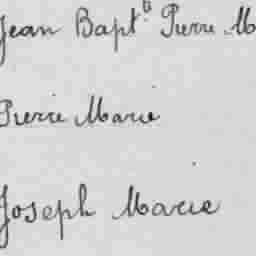 Jean Bapt.e Pierre M
Pierre Marie
Joseph Marie